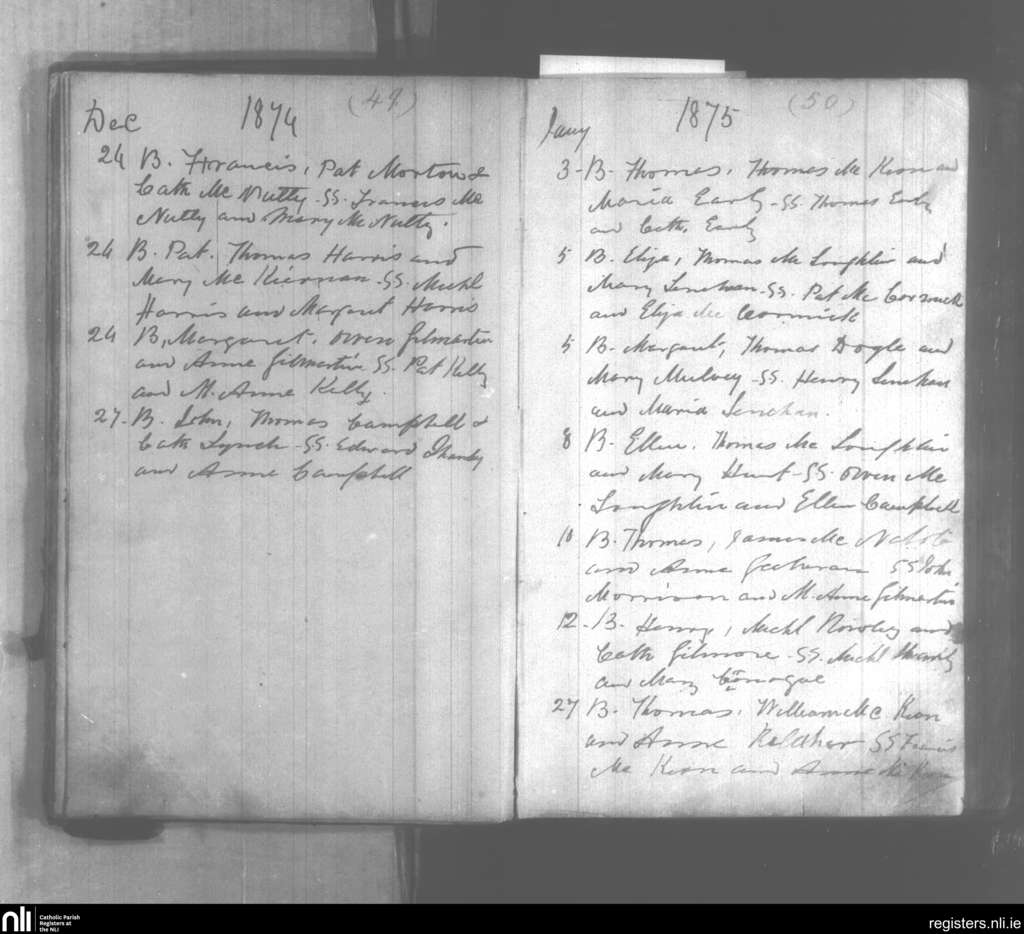 Dec 1874 (49)
24 B. Francis, Pat Morton &
Cath Mc Nutty - SS. Francis Mc
Nutty and Mary Mc Nutty.
24 B. Pat. Thomas Harris and
Mary Mc Kiernan - SS. Michl
Harris and Margaret Harris
24 B, Margaret. Owen Gilmartin
and Anne Gilmartin SS. Pat Kelly
and M. Anne Kelly.
27. B. John, Thomas Campbell &
Cath Lynch - SS. Edward
and Anne Campbell
Jany 1875 (50)
3 - B. Thomas. Thomas Mc Keon and
Maria Early - SS. Thomas Early
and Cath. Early
5 B. Eliza, Thomas Mc Loughlin and
Mary Lenehan - SS. Pat Mc Cormick
and Eliza Mc Cormick
5 B. Margaret, Thomas Doyle and
Mary Mulvey - SS. Henry Lenehan
and Maria Lenehan.
8 B. Ellen. Thomas Mc Loughlin
and Mary Hunt - SS. Owen Mc
Loughlin and Ellen Campbell
10 B. Thomas, James Mc
and Anne SS John
Morrison and M. Anne Gilmartin
12 - B. Henry, Michl Rowley and
Cath Gilmore - SS. Michl
and Mary Conogue
27 B. Thomas. William Mc Keon
and Anne Keldher SS Francis
Mc Keon and Anne Mc Keon
nli Catholic Parish
Registers at
the NLI
registers.nli.ie